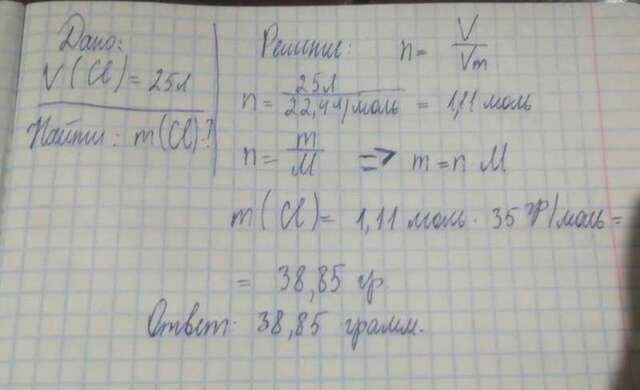 Дано:
V(Cl) = 25л
Найти: m(Cl)?
Решение: n = V/Vm
n = 25л/22,4л/моль = 1,11 моль
n = m/M => m = n · M
m(Cl) = 1,11 моль · 35 гр/моль =
= 38,85 гр
Ответ: 38,85 грамм.